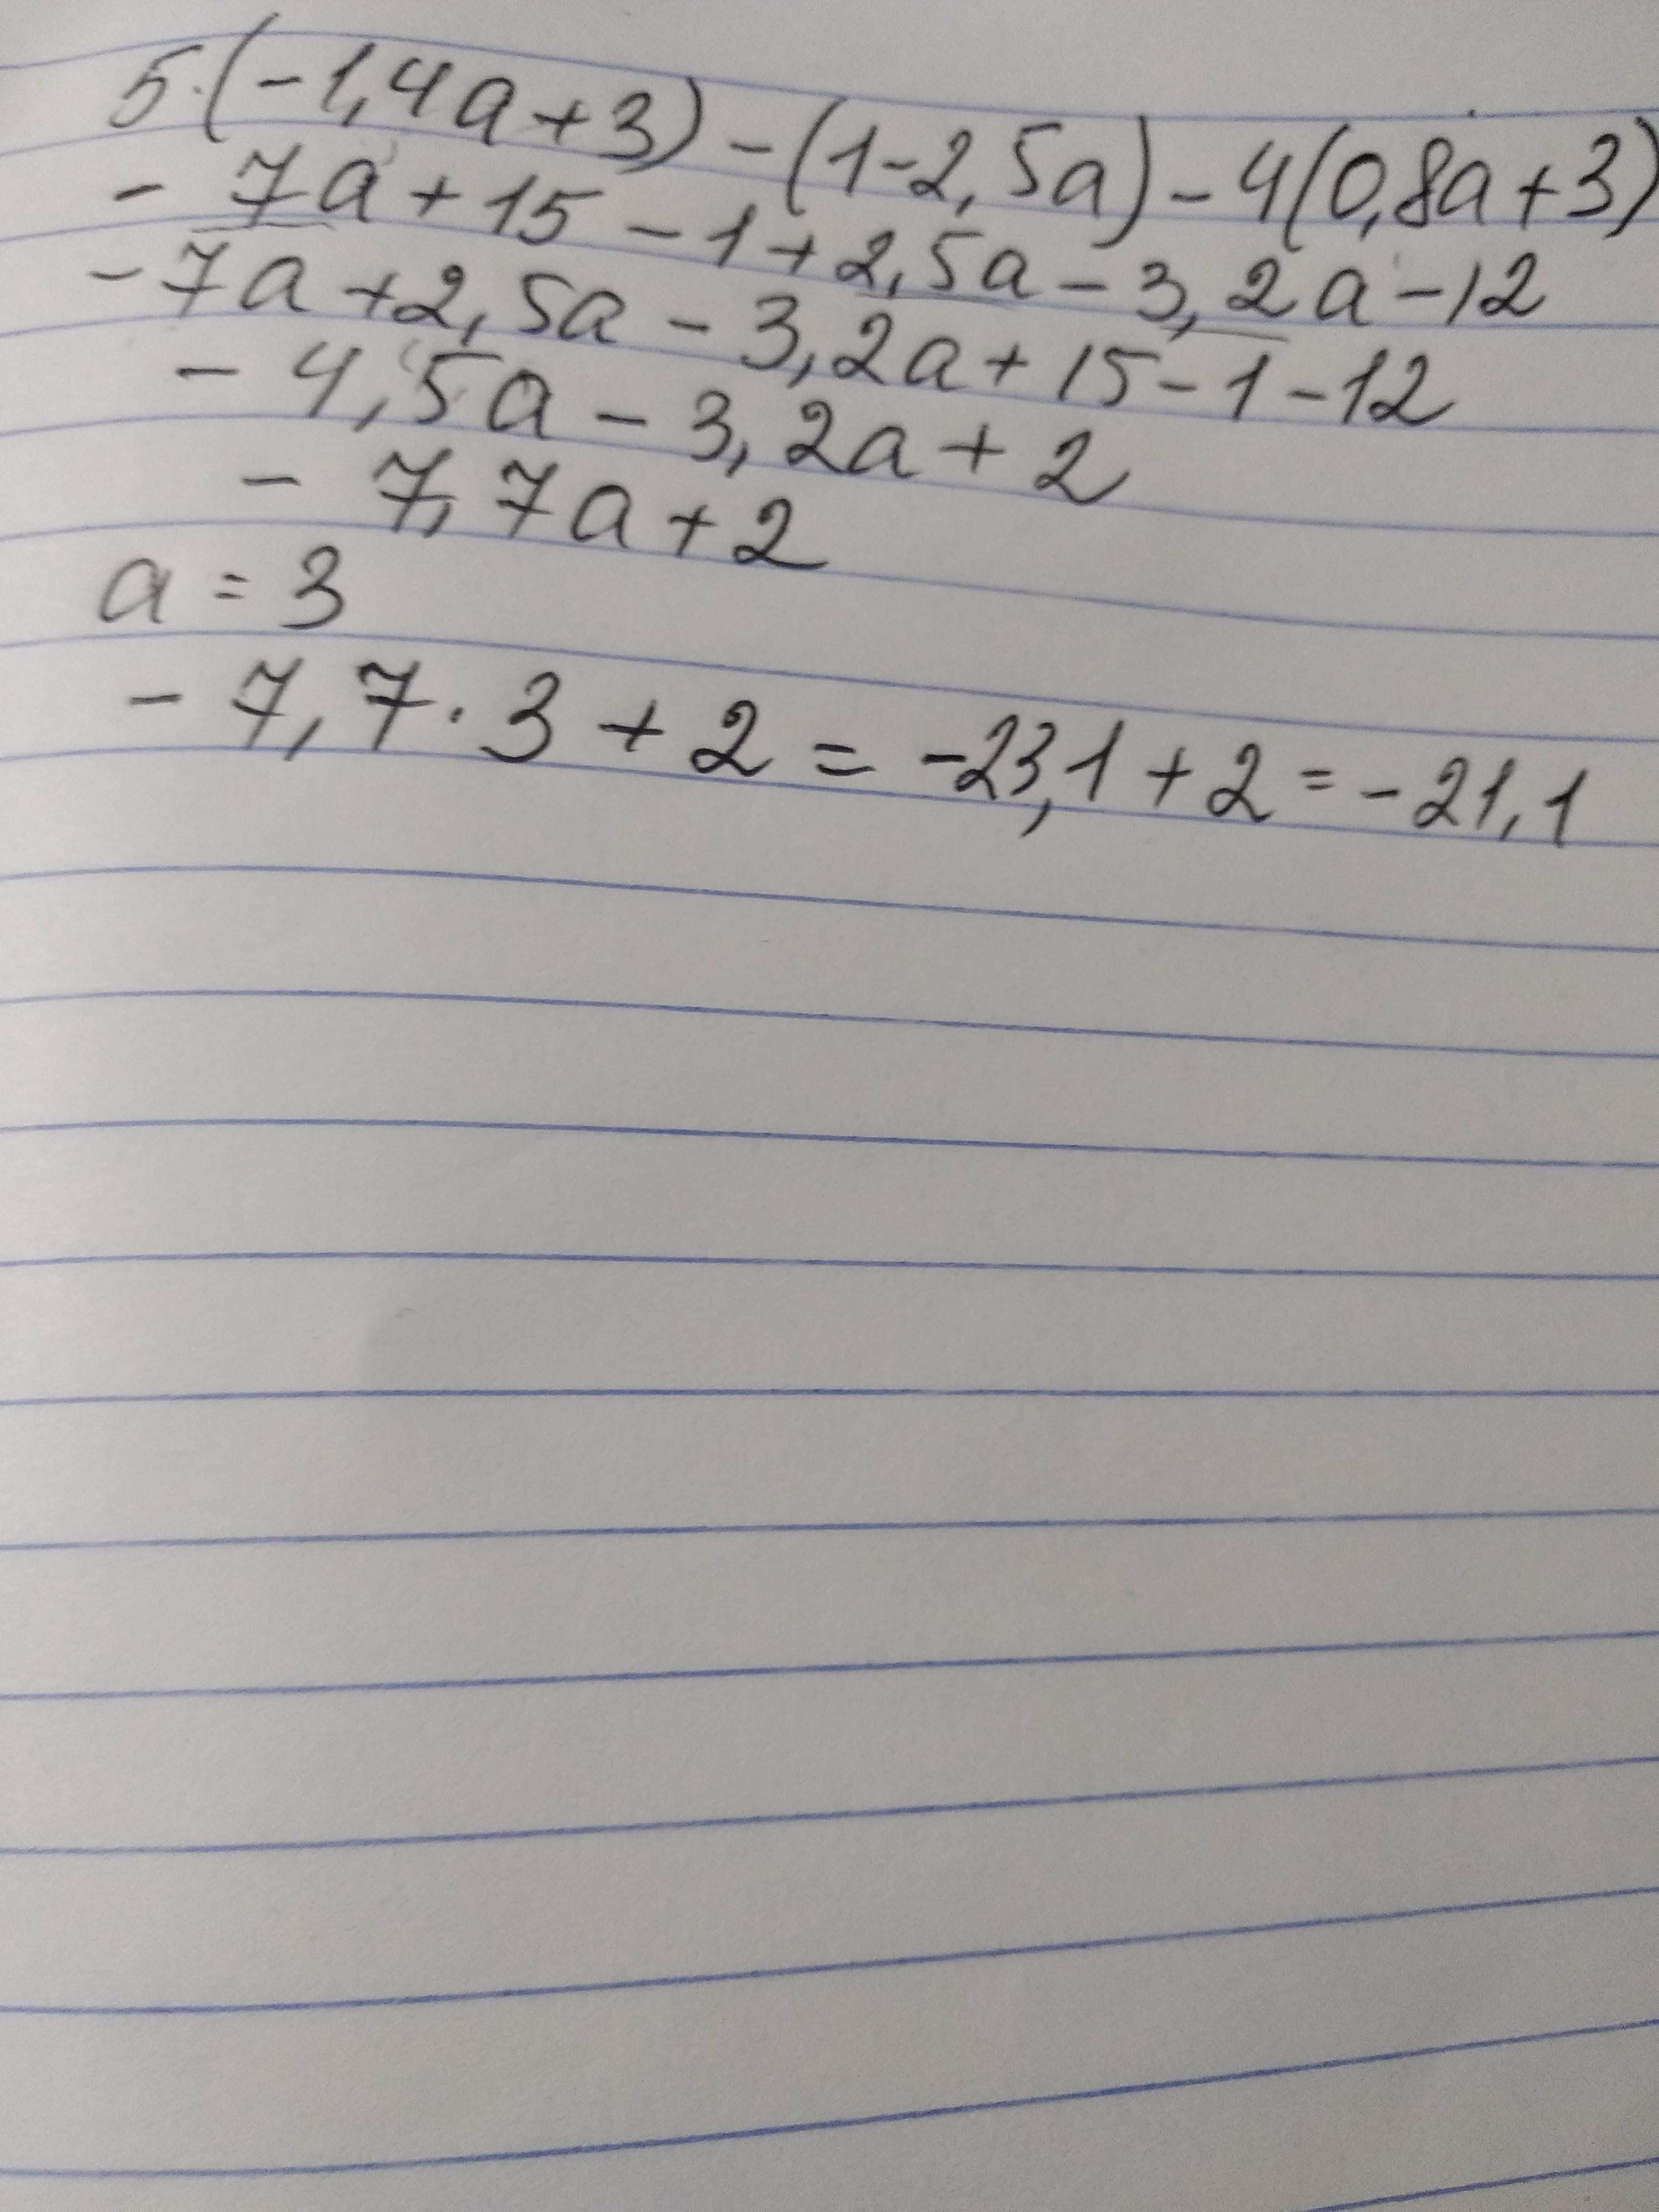 5·(-1,4a+3)-(1-2,5a)-4(0,8a+3)
-7a+15-1+2,5a-3,2a-12
-7a+2,5a-3,2a+15-1-12
-4,5a-3,2a+2
-7,7a+2
a=3
-7,7·3+2=-23,1+2=-21,1